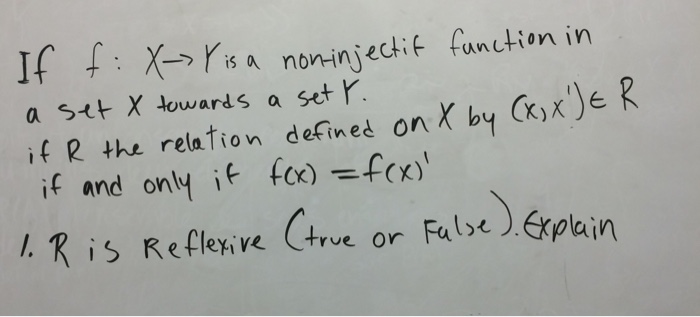 If f: X→Y is a non-injectif function in
a set X towards a set Y.
if R the relation defined on X by (x,x')∈ R
if and only if f(x) = f(x)'
1. R is Reflexive (true or False). Explain